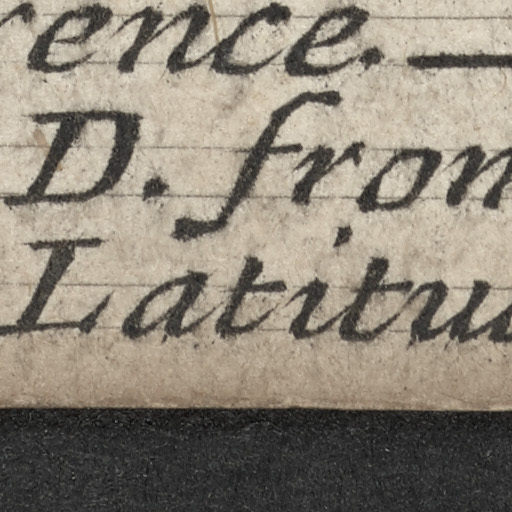 rence. —
D. from
Latitu